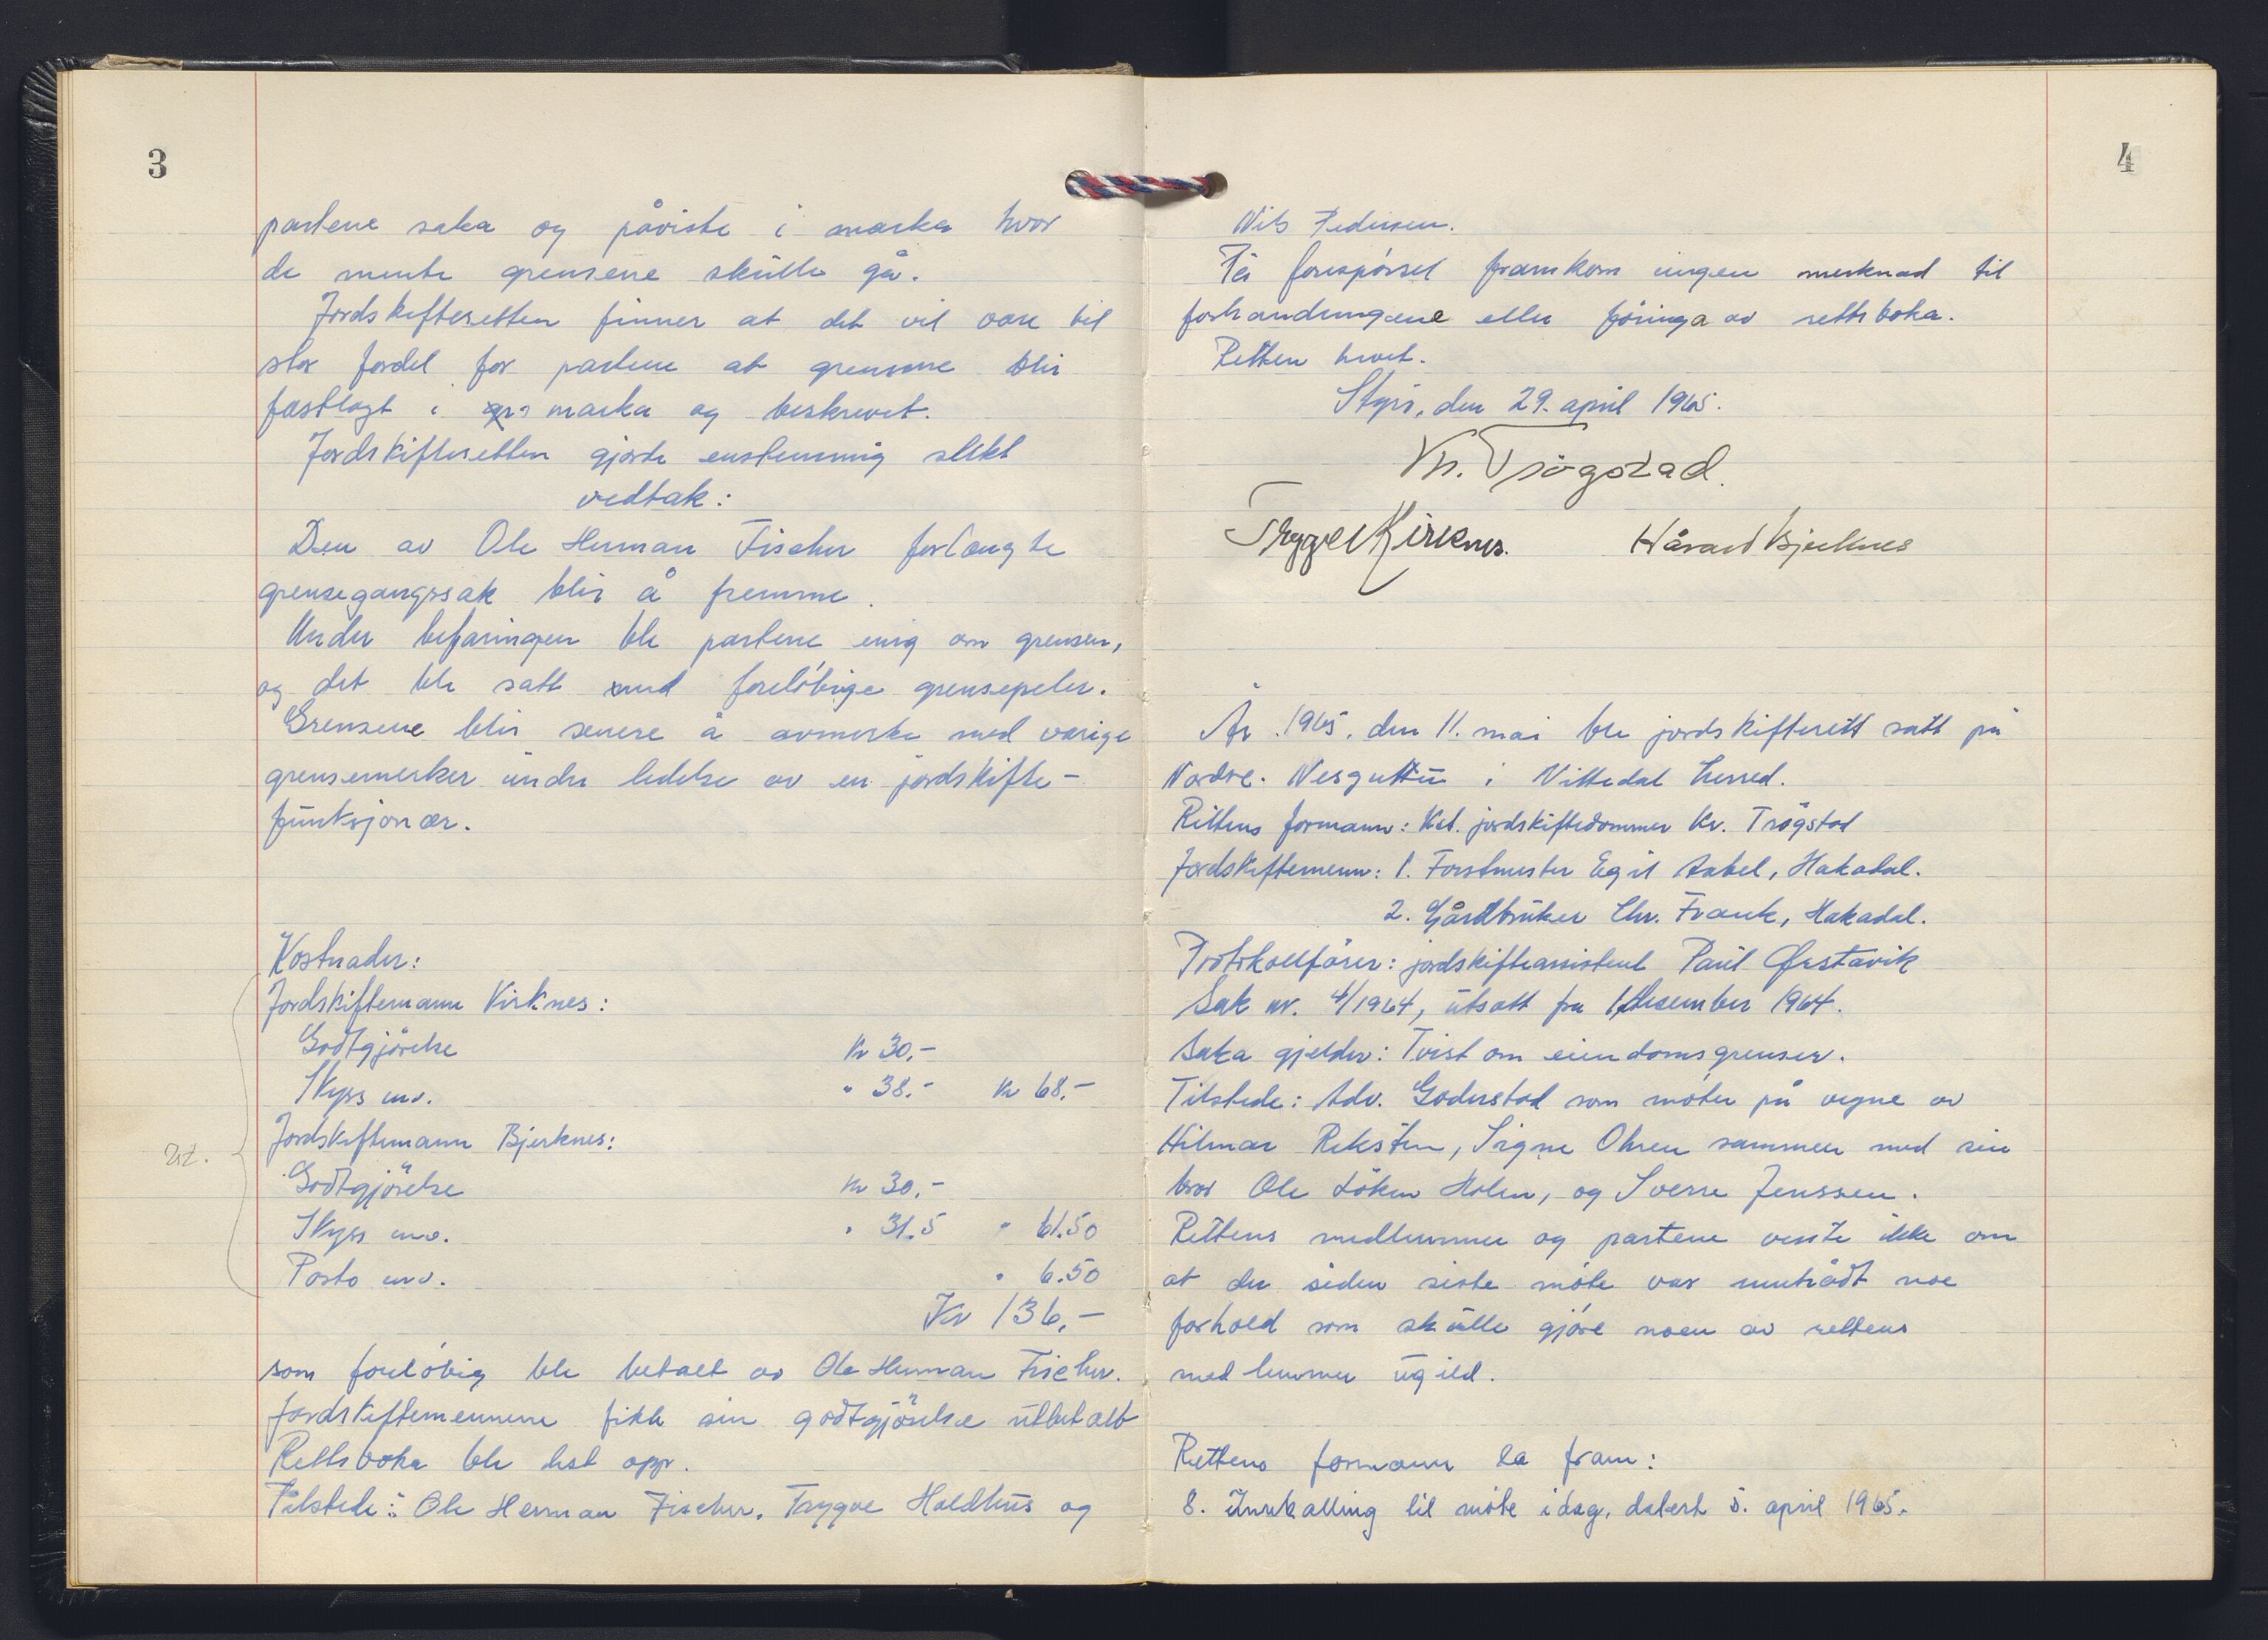 3
partene saka og påviste i marka hvor
de mente grensene skulle gå.
Jordskifteretten finner at det vil være til
stor fordel for partene at grensene blir
fastlagt i marka og beskrevet.
Jordskifteretten gjorde enstemmig slikt
vedtak:
Den av Ole Herman Fischer forlangte
grensegangssak blir å fremme.
Under befaringen ble partene enig om grensen,
og det ble satt ned foreløbige grensepeler.
Grensene blir senere å avmerke med varige
grensemerker under ledelse av en jordskifte-
funksjonær.
Kostnader:
Jordskiftemann Kirknes:
Godtgjørelse kr 30,-
Skyss m.v. " 38.- kr 68,-
Jordskiftemann Bjerknes:
Godtgjørelse kr 30,-
Skyss m.v. " 31.5 " 61.50
Porto m.v. " 6.50
Kr 136,-
som foreløbig ble betalt av Ole Herman Fischer.
Jordskiftemennene fikk sin godtgjørelse utbetalt
Rettsboka ble lest opp.
Tilstede: Ole Herman Fischer, Trygve Holdhus og
4
Nils Pedersen.
På forespørsel framkom ingen merknad til
forhandlingene eller føringa av rettsboka.
Retten hevet.
Styri, den 29. april 1965.
Kr. Trøgstad
Trygve Kirknes. Håvard Bjerknes
År 1965, den 11. mai ble jordskifterett satt på
Nordre i Nittedal herred.
Rettens formann: Kst. jordskiftedommer Kr. Trøgstad
Jordskiftemenn: 1. Forstmester Egil Aabel, Hakadal.
2. Gårdbruker Chr. Frank, Hakadal.
Protokollfører: jordskifteassistent Paul Ørstavik
Sak nr. 4/1964, utsatt fra 1. desember 1964.
Saka gjelder: Tvist om eiendomsgrenser.
Tilstede: Adv. Goderstad som møter på vegne av
Hilmar Reksten, Signe Ohren sammen med sin
bror Ole Løken Holm, og Sverre Jenssen.
Rettens medlemmer og partene visste ikke om
at der siden siste møte var inntrådt noe
forhold som skulle gjøre noen av rettens
medlemmer ugild.
Rettens formann la fram:
8. Innkalling til møte idag, datert 5. april 1965.